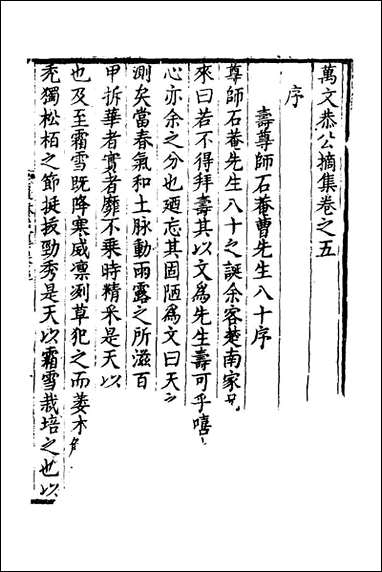 萬文恭公摘集卷之五
序
壽尊師石菴曹先生八十序
尊師石菴先生八十之誕余客楚南家兄
來曰若不得拜壽其以文爲先生壽可乎嘻
心亦余之分也廼忘其固陋爲文曰天之
測矣當春氣和土脉動雨露之所滋百
甲拆華者實者靡不乗時精采是天以
也及至霜雪既降寒威凛冽草犯之而萎木
禿獨松栢之節挺拔勁秀是天以霜雪栽培之也以